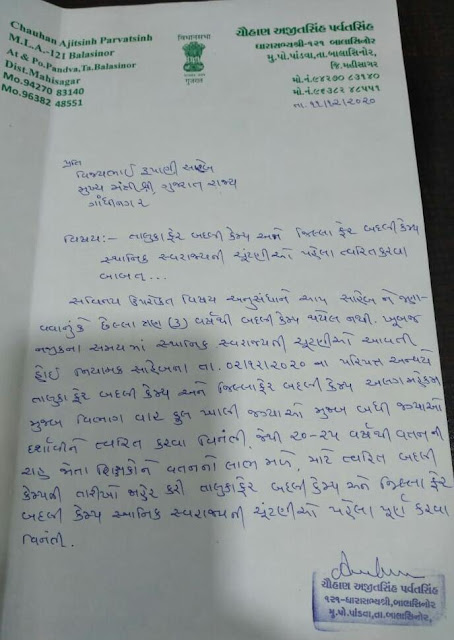 Chauhan Ajitsinh Parvatsinh
M.L.A.-121 Balasinor
At & Po.Pandva,Ta.Balasinor
Dist.Mahisagar
Mo.94270 83140
Mo.96382 48551
વિધાનસભા
ગુજરાત
ચૌહાણ અજીતસિંહ પર્વતસિંહ
ધારાસભ્યશ્રી-૧૨૧ બાલાસિનોર,
મુ.પો.પાંડવા,તા.બાલાસિનોર,
જિ.મહીસાગર
મો.નં.૯૪૨૭૦ ૮૩૧૪૦
મો.નં.૯૬૩૮૨ ૪૮૫૫૧
તા. ૧૧/૧૨/૨૦૨૦
પ્રતિ
વિજયભાઈ રૂપાણી સાહેબ
મુખ્ય મંત્રી શ્રી, ગુજરાત રાજ્ય
ગાંધીનગર
વિષય:- તાલુકાફેર બદલી કેમ્પ અને જિલ્લા ફેર બદલી કેમ્પ
સ્થાનિક સ્વરાજ્યની ચૂંટણીઓ પહેલા ત્વરિત કરવા
બાબત...
સવિનય ઉપરોક્ત વિષય અનુસંધાને આપ સાહેબ ને જણા-
વવાનું કે છેલ્લા ત્રણ (૩) વર્ષથી બદલી કેમ્પ થયેલ નથી. ખૂબજ
નજીકના સમયમાં સ્થાનિક સ્વરાજ્યની ચૂંટણીઓ આવતી
હોઈ નિયામક સાહેબના તા. ૦૨/૧૧/૨૦૨૦ ના પરિપત્ર અન્વયે
તાલુકા ફેર બદલી કેમ્પ અને જિલ્લાફેર બદલી કેમ્પ અલગ મહેકમ
મુજબ વિભાગ વાર કુલ ખાલી જગ્યાઓ મુજબ બધી જગ્યાઓ
દર્શાવીને ત્વરિત કરવા વિનંતી. જેથી ૨૦-૨૫ વર્ષથી વતનની
રાહ જોતા શિક્ષકોને વતનનો લાભ મળે. માટે ત્વરિત બદલી
કેમ્પની તારીખો જાહેર કરી તાલુકાફેર બદલી કેમ્પ અને જિલ્લા ફેર
બદલી કેમ્પ સ્થાનિક સ્વરાજ્યની ચૂંટણીઓ પહેલા પૂર્ણ કરવા
વિનંતી.
ચૌહાણ અજીતસિંહ પર્વતસિંહ
૧૨૧-ધારાસભ્યશ્રી,બાલાસિનોર
મુ.પો.પાંડવા,તા.બાલાસિનોર,